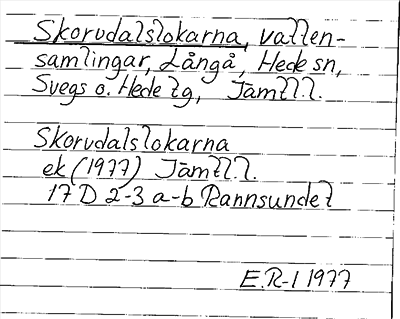 Skorvdalslokarna, vatten-
samlingar, Långå, Hede sn,
Svegs o. Hede tg, Jämtl.l.
Skorvdalslokarna
ek (1977) Jämtl.l.
17 D 2-3 a-b Rannsundet
E.R-l 1977